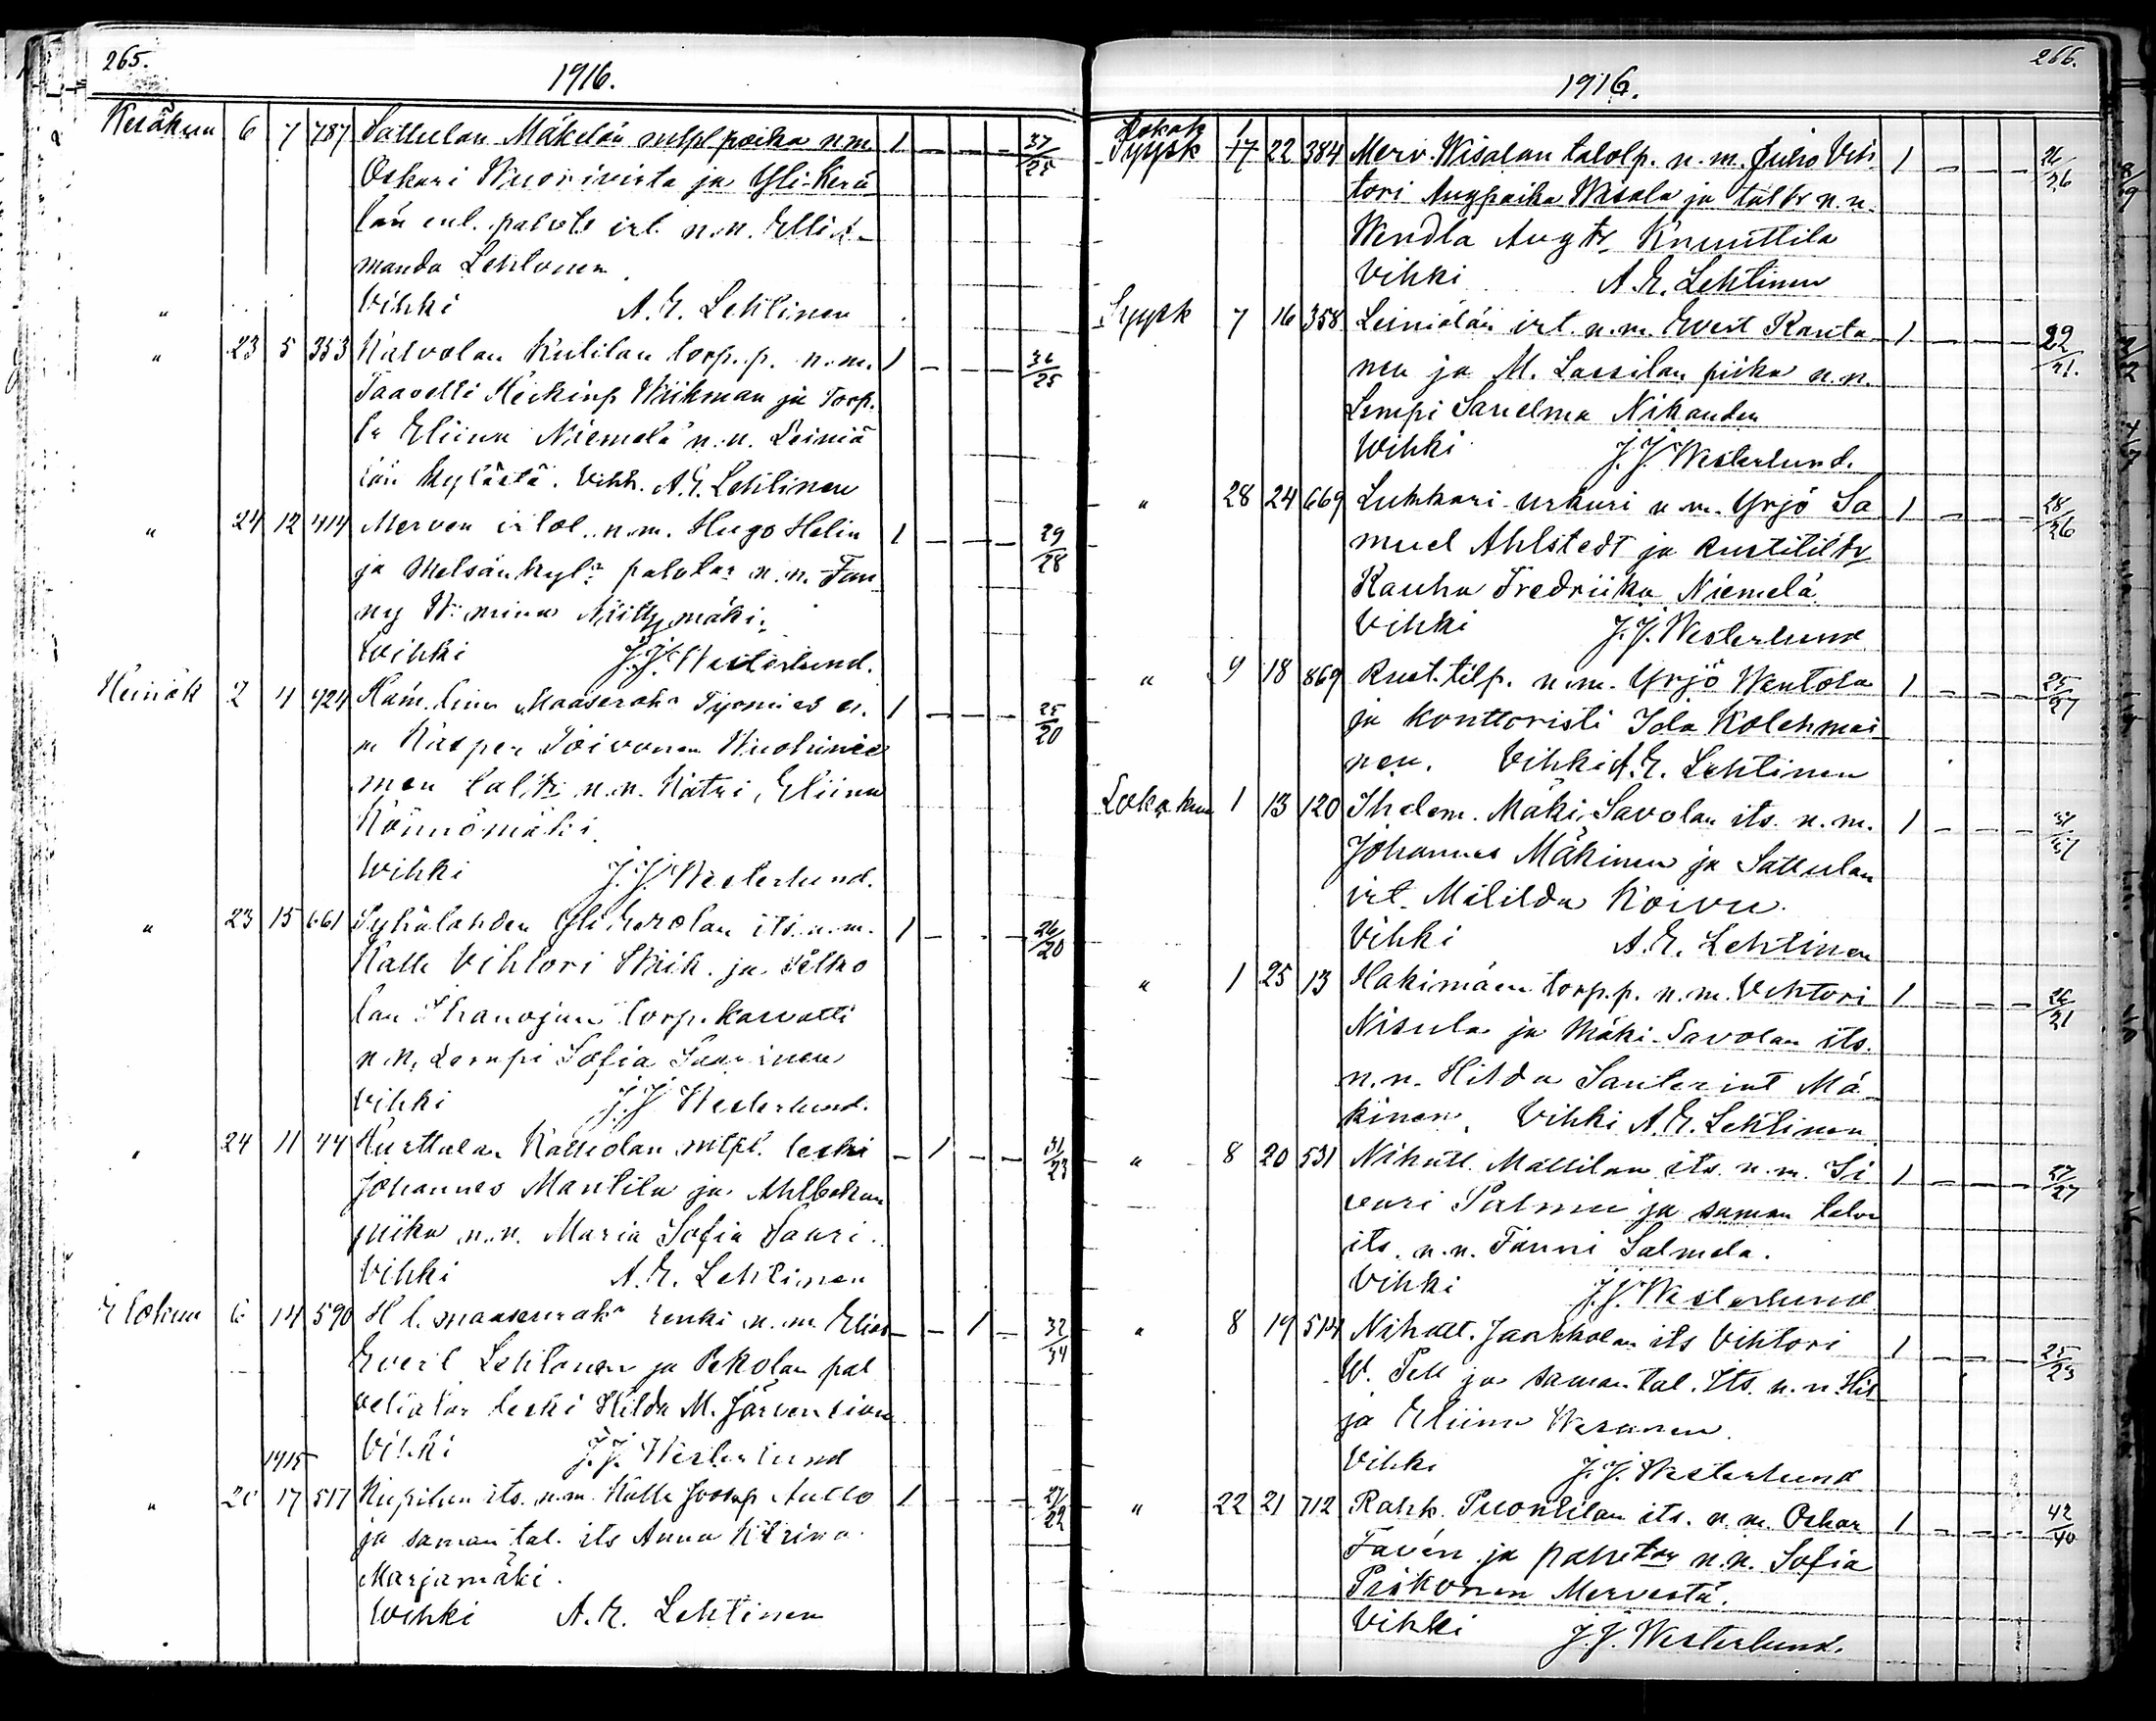 265.
1916.
Kesäkuu 6 7 787 Sattulan Mäkelän mtpl poika n.m. 1 – – – 37/25
Oskari Wuorivirta ja Yli-Kerä
län enl. palvelt irt. n.n. Elli A-
manda Lehtonen.
" Vihki A. E. Lehtinen
" 23 5 353 Katvolan Kutilan torp. p. n.m. 1 – – – 36/25
Taavetti Heikinp Wiikman ja Torp.
tr Eliina Niemelä n.n. Leiniä
län kylästä. Vihk. A. E. Lehtinen
" 24 12 414 Merven irtol. n.m. Hugo Helin 1 – – – 29/28
ja Metsänkylä palvtar n.n. Fan
ny W:mina Niittymäki.
Wihki J. J. Westerlund.
Heinäk 2 4 424 Häm. linn Maaserak. Työmies n. 1 – – – 25/20
m Kasper Toivonen Wuohinie
men tal. tr n.n. Katri Eliina
Könnömäki.
Wihki J. J. Westerlund.
" 23 15 661 Syhälahden Yli Eerolan its. n.m. 1 – – – 26/20
Kalle Vihtori Wiik ja Pelko
lan Ihanojan torp. kasvatti
n.n. Lempi Sofia Saarinen
Vihki J. J. Westerlund.
" 24 11 44 Kurttulan Kalliolan mtpl. leski – 1 – – 31/23
Johannes Mantila ja Ahlbackan
piika n.n. Maria Sofia Saari.
Vihki A. E. Lehtinen
Elokuu 6 14 590 H l. maaseurak. renki n.m. Elias – – 1 – 32/34
Evert Lehtonen ja Pekolan pal
velijatar leski Hilda M. Järvensivu
Vihki J. J. Westerlund
1915
" 20 17 517 Kupilan its. n.m. Kalle Joosep Aulto 1 – – – 27/22
ja saman tal. its Anna Katrina
Marjamäki.
Wihki A. E. Lehtinen
266.
1916.
Lokak 1
Syysk 17 22 384 Merv. Wisalan talolp. n.m. Juho Vih 1 – – – 26/26
tori Augpoika Wisala ja tal tr n.n.
Wendla Aug tr Knuuttila
Vihki A. E. Lehtinen
Syysk 7 16 358 Leiniälän irt. n.m. Evert Kanta 1 – – – 22/21.
nen ja M. Lassilan piika n.n.
Lempi Sanelma Nikander
Wihki J. J. Westerlund.
" 28 24 669 Lukkari-urkuri n.m. Yrjö Sa 1 – – – 28/26
muel Ahlstedt ja Rustitil tr
Rauha Fredriika Niemelä
Vihki J. J. Westerlund
" 9 18 869 Rust. tilp. n.m. Yrjö Wentola 1 – – – 25/27
ja konttoristi Ida Kolehmai
nen. Vihki A. E. Lehtinen
Lokakuu 1 13 120 Ihalem. Mäki-Savolan its. n.m. 1 – – –
Johannes Mäkinen ja Sattulan
irt. Mililda Koivu.
Vihki A. E. Lehtinen
" 1 25 13 Hakimäen torp. p. n.m. Vihtori 1 – – – 26/21
Nisula ja Mäki-Savolan its.
n.n. Hilda Santerint Mä-
kinen. Vihki A. E. Lehtinen
" 8 20 531 Nihatt. Mattilan its. n.m. Si 1 – – – 27/27
vari Palmu ja saman talon
its. n.n. Fanni Salmela.
Vihki J. J. Westerlund
" 8 19 514 Nihatt. Jankkolan its Vihtori 1 – – – 25/23
W. Pell ja saman tal. Its. n.n. Hil
ja Eliina Wesanen.
Vihki J. J. Westerlund
" 22 21 712 Rahk. Puontilan its. n.m. Oskar 1 – – – 42/40
Favén ja palvetar n.n. Sofia
Piikonen Mervestä.
Vihki J. J. Westerlund.